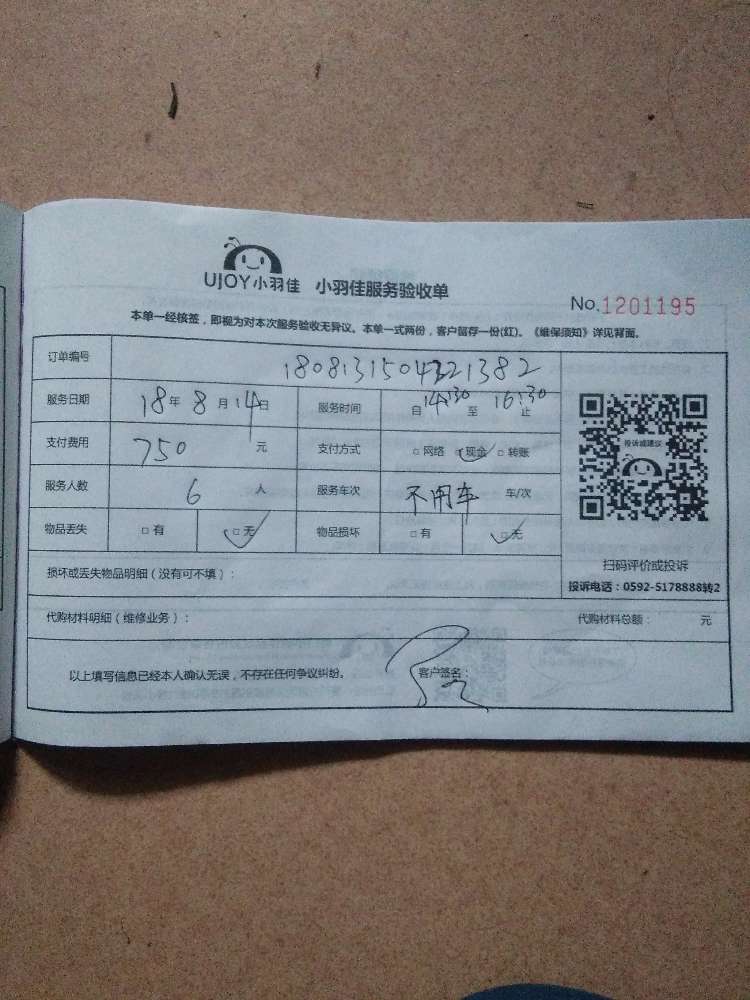 UJOY小羽佳 小羽佳服务验收单
No.1201195
本单一经核签，即视为对本次服务验收无异议。本单一式两份，客户留存一份(红)。《维保须知》详见背面。
订单编号 1808131504321382
服务日期 18年 8月 14日 服务时间 自14:30至16:30止
支付费用 750 元 支付方式 □网络 □现金 □转账
投诉或建议
服务人数 6 人 服务车次 不用车 车/次
物品丢失 □有 □无 物品损坏 □有 □无
扫码评价或投诉
损坏或丢失物品明细（没有可不填）：
投诉电话：0592-5178888转2
代购材料明细（维修业务）： 代购材料总额： 元
以上填写信息已经本人确认无误，不存在任何争议纠纷。 客户签名：